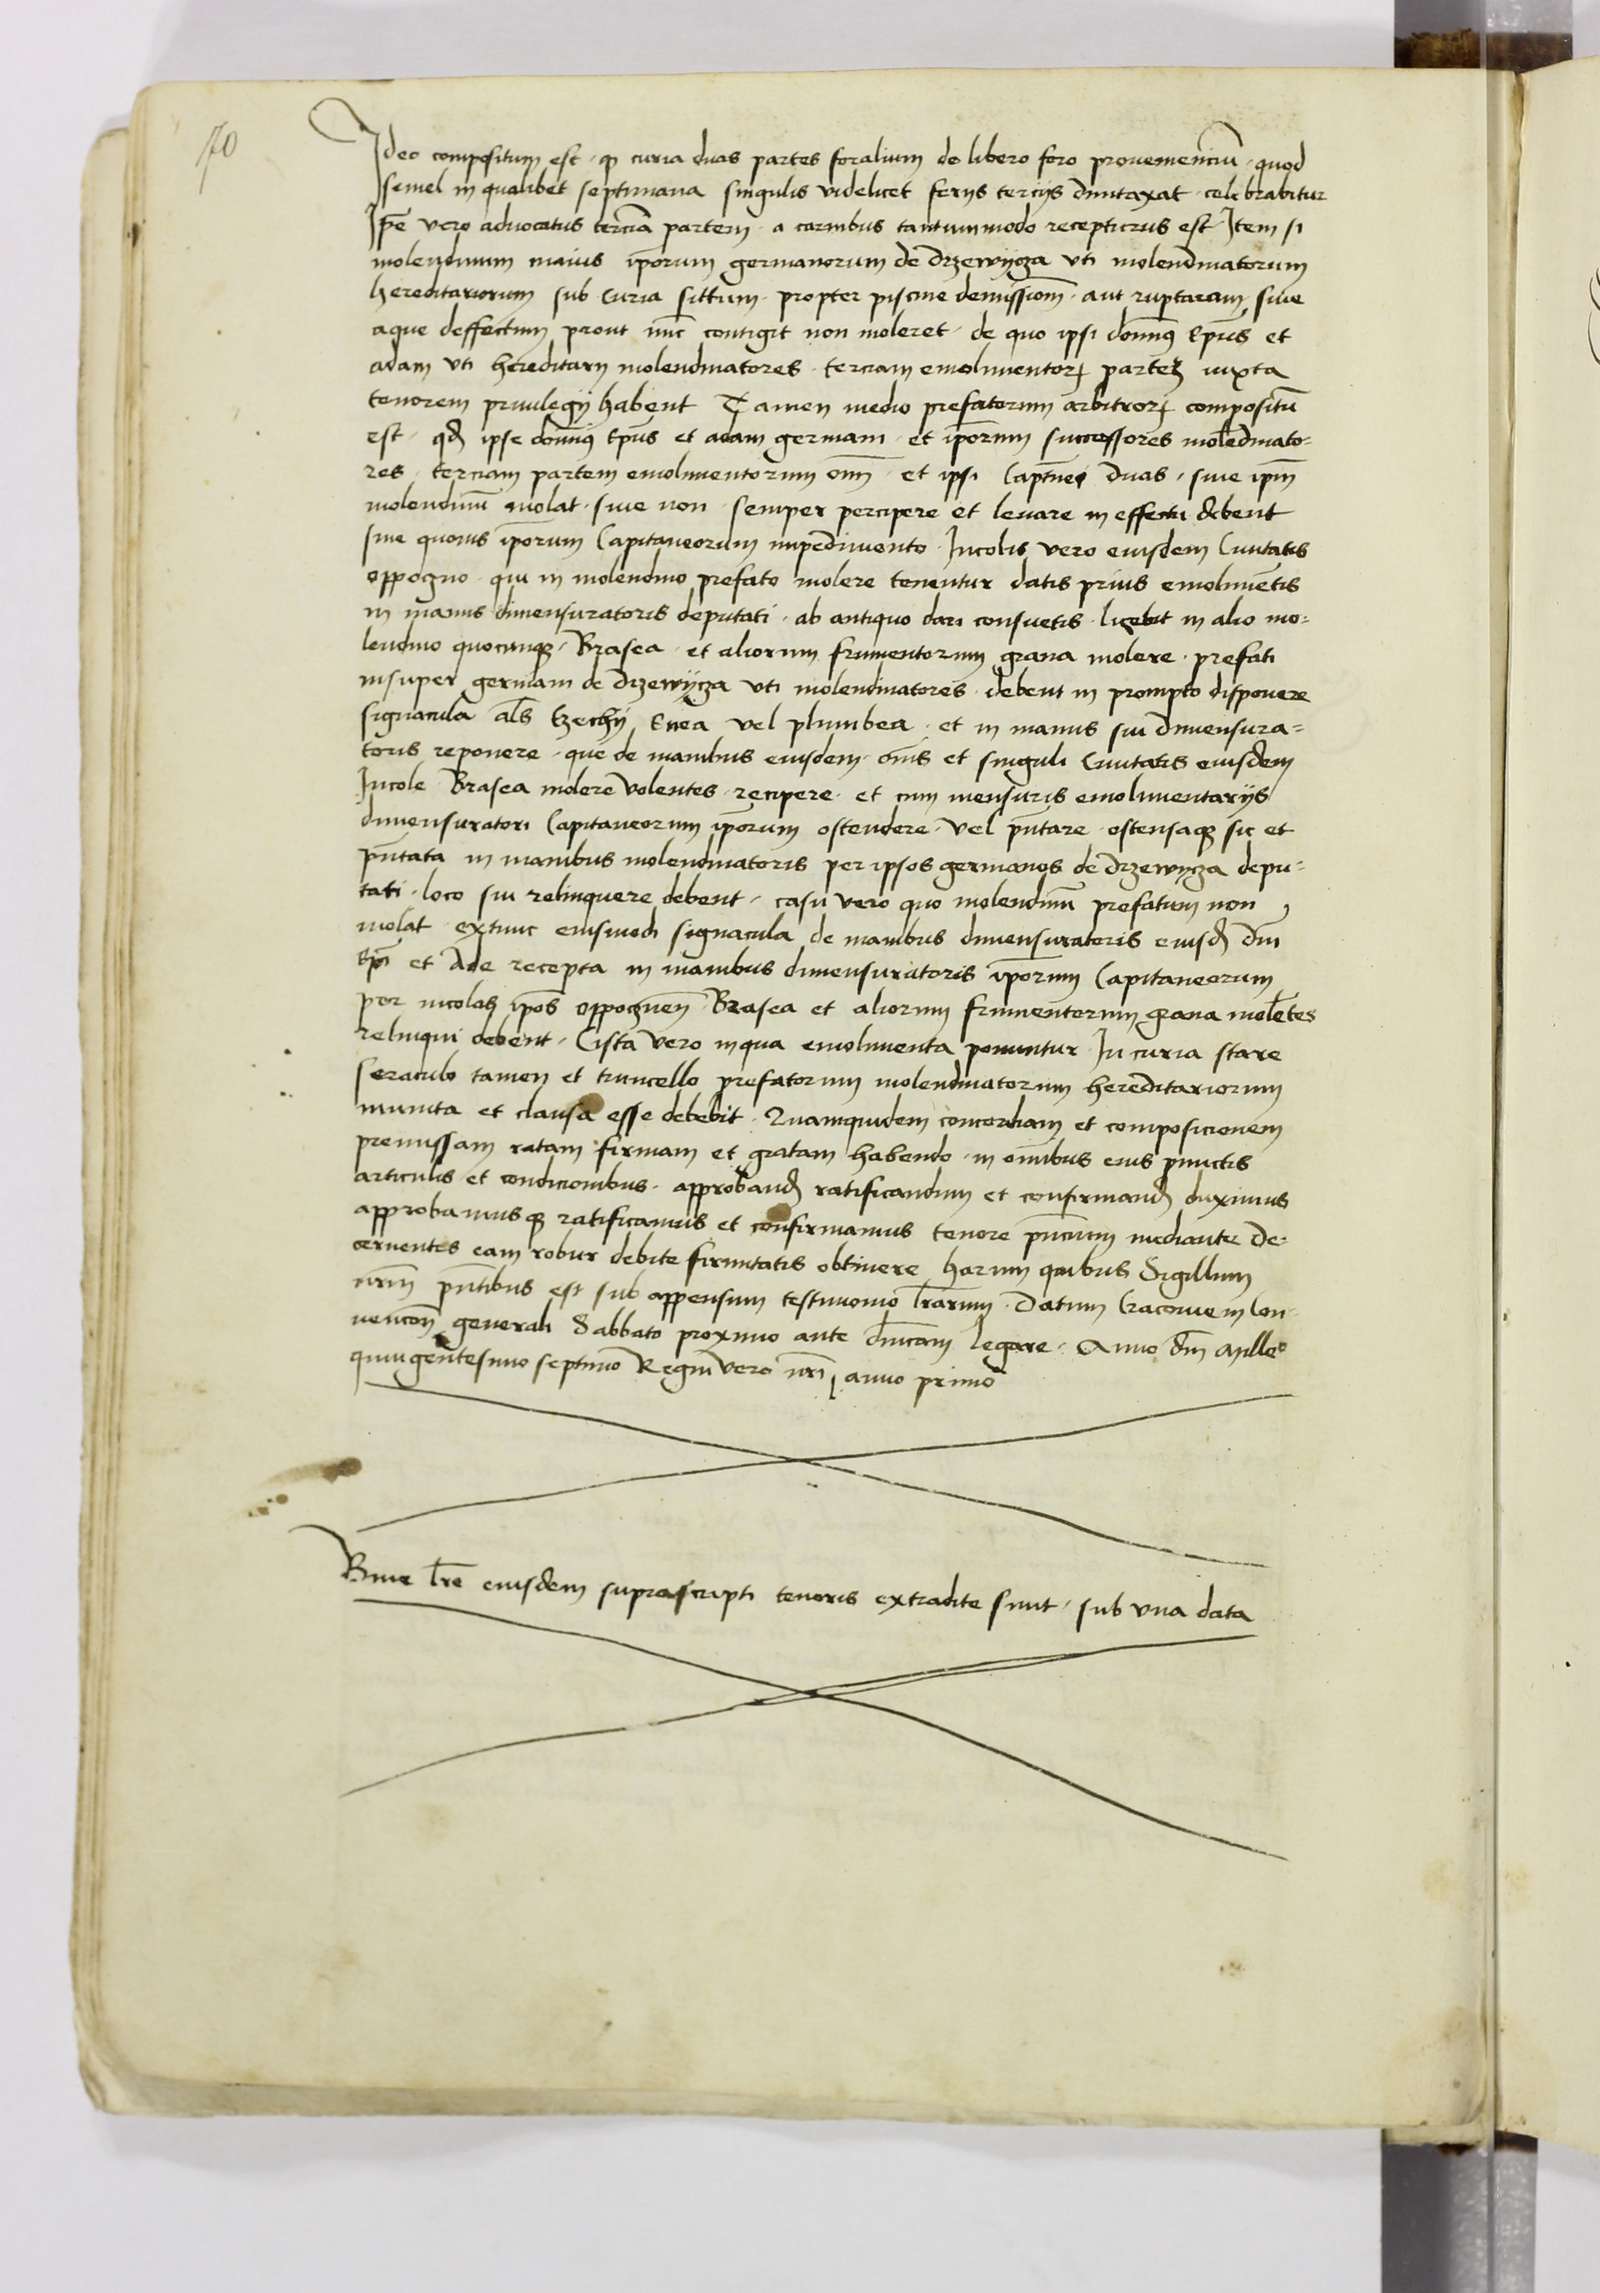 70
Ideo compositum est · qz curia duas partes foralium de libero foro provenienciu · quod
semel in qualibet septimana singulis videlicet ferijs tercijs duntaxat · celebrabitur
Ipe vero advocatus tercia partem · a carnibus tantummodo recepturus est · Item si
molendinum maius iporum germanorum de Drzewycza vti molendinatorum
hereditariorum sub Curia situm · propter piscine demissiom · aut rupturam sive
aque deffectum prout nuc contigit non moleret · de quo ipsi domus Epus et
adam vti hereditarij molendinatores · terciam emolimentorz partez iuxta
tenorem privilegij habent Tamen medio prefatorum arbitrorz compositu
est · qd ipse domus Epus et adam germani · et iporum successores moledinato-
res · terciam partem emolimentorum om · et ipsi Captnei duas · sive ipm
molendinu molat · sive non · semper percipere et levare in effectu debent
sine quovis iporum Capitaneorum impedimento · Incolis vero eiusdem Civitatis
oppogno · qui in molendino prefato molere tenentur datis prius emolimetis
in manus dimensuratoris deputati · ab antiquo dari consuetis · licebit in alio mo-
lendino quocunqz · Brasea · et aliorum frumentorum grana molere · prefati
insuper germani de Drzewycza vti molendinatores · debent in prompto disponere
signacula als Czechy Enea vel plumbea · et in manus sui dimensura-
toris reponere · que de manibus eiusdem · ois et singuli Civitatis eiusdem
Incole Brasea molere volentes · recipere · et cum mensuris emolimentarijs
dimensuratori Capitaneorum iporum ostendere · vel pntare · ostensaqz sic et
pntata in manibus molendinatoris per ipsos germanos de Drzewycza depu-
tati · loco sui relinquere debent · casu vero quo molendinu prefatum non
molat · extunc eiusmodi signacula de manibus dimensuratoris eiusd dni
Epi et Ade recepta in manibus dimensuratoris iporum Capitaneorum
per incolas ipos oppoznen Brasea et aliorum frumentorum grana moletes
relinqui debent · Cista vero in qua emolimenta ponuntur In curia stare
seraculo tamen et truncello prefatorum molendinatorum hereditariorum
munita et clausa esse debebit · Quamquidem concordiam et composicionem
premissam ratam firmam et gratam habendo · in omibus eius punctis
articulis et condicionibus · approband ratificandum et confirmand duximus
approbamusqz ratificamus et confirmamus tenore pncium mediante De-
cernentes eam robur debite firmitatis obtinere harum quibus Sigillum
nrm pntibus est sub appensum testimonio lrarum · Datum Cracovie in Con-
vencon generali Sabbato proximo ante dnicam Letare · Anno dm Mille°
quingentesimo septimo Regni vero nri anno primo
Bine lre eiusdem suprascripti tenoris extradite sunt · sub una data